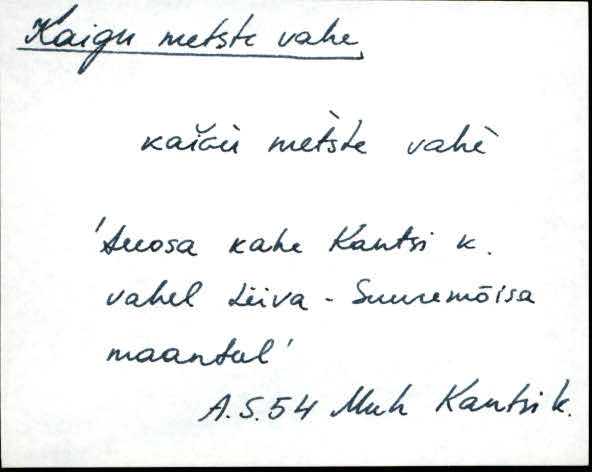 Kaigu metste vahe,
kaiɢù mètste vahè
'teeosa kahe Kantsi k.
vahel Liiva - Suuremõisa
maanteel'
A.S.54 Muh Kantsi k.